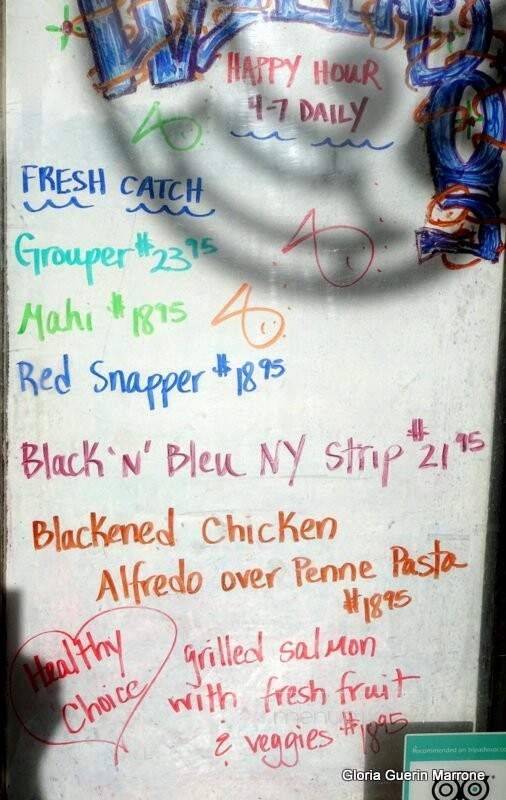 HAPPY HOUR
4-7 DAILY
FRESH CATCH
Grouper #23 95
Mahi #18 95
Red Snapper #18 95
Black 'N' Bleu NY Strip #21 95
Blackened Chicken
Alfredo over Penne Pasta
#18 95
Healthy
Choice
grilled salmon
with fresh fruit
& veggies #18 95
Recommended on tripadvisor
Gloria Guerin Marrone